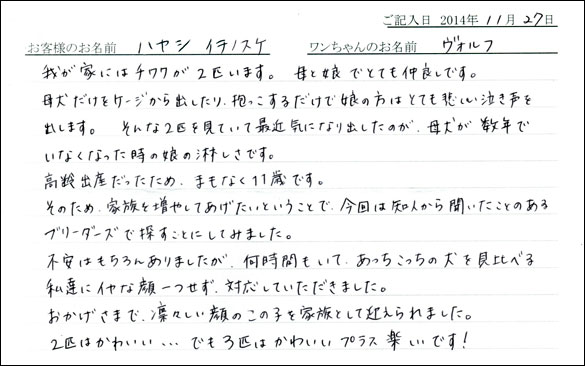 ご記入日 2014年 11月 27日
お客様のお名前 ハヤシ イチノスケ ワンちゃんのお名前 ヴォルフ
我が家にはチワワが2匹います。 母と娘でとても仲良しです。
母犬だけをケージから出したり、抱っこするだけで娘の方はとても悲しい泣き声を
出します。 そんな2匹を見ていて最近気になり出したのが、母犬が数年で
いなくなった時の娘の淋しさです。
高齢出産だったため、まもなく11歳です。
そのため、家族を増やしてあげたいということで、今回は知人から聞いたことのある
ブリーダーズで探すことにしてみました。
不安はもちろんありましたが、何時間もいて、あっちこっちの犬を見比べる
私達にイヤな顔一つせず、対応していただきました。
おかげさまで、凛々しい顔のこの子を家族として迎えられました。
2匹はかわいい… でも3匹はかわいいプラス楽しいです!